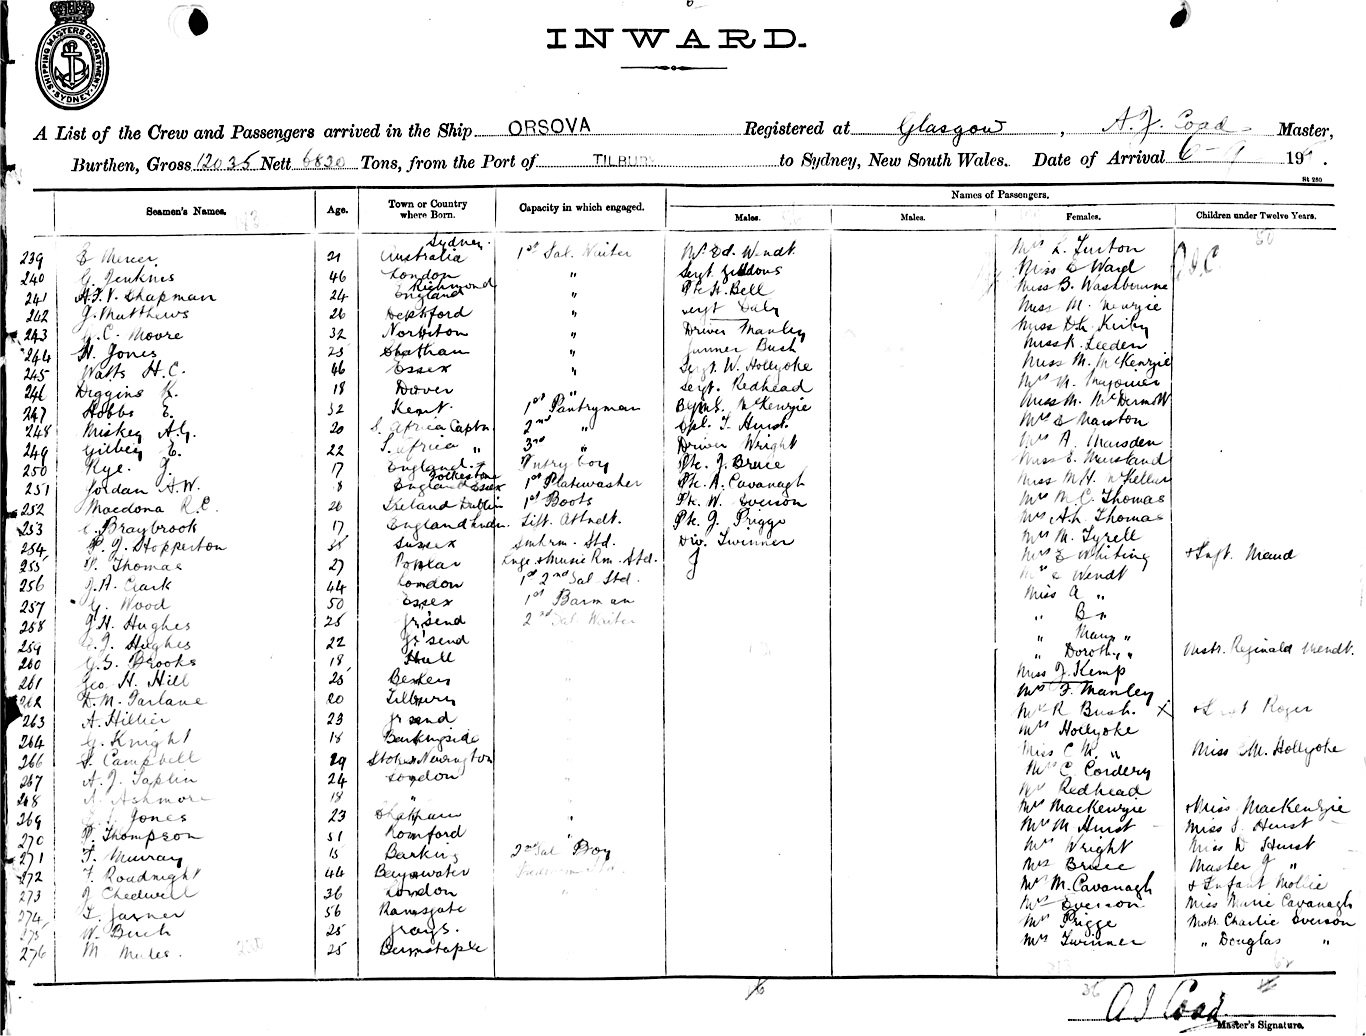 SHIPPING MASTERS DEPARTMENT. SYDNEY.
INWARD.
A List of the Crew and Passengers arrived in the Ship ORSOVA Registered at Glasgow, A.J. Coad Master,
Burthen, Gross 12035 Nett 6830 Tons, from the Port of TILBURY to Sydney, New South Wales. Date of Arrival 6-9 19
St 280
Seamen's Names. Age. Town or Country where Born. Capacity in which engaged. Names of Passengers.
Males. Males. Females. Children under Twelve Years.
239 E Mercer 21 Australia Sydney. 1st Sal. Waiter Mr Ed. Wendt Mrs L. Turton
240 G. Jenkins 46 London " Sergt Giddons Miss E Ward
241 A.F.V. Chapman 24 England Richmond " Pte H. Bell Miss B. Washbourne
242 G. Matthews 26 Deptford " Sergt Daly Miss M. Menzie
243 C. Moore 32 Norbiton " Driver Manley Miss D.L. Kirby
244 H. Jones 25 Chatham " Gunner Bush Miss R. Leeden
245 Watts H.C. 46 Essex " Sergt. W. Hollyoke Miss M. McKenzie
246 Diggins K. 18 Dover " Sergt. Redhead Mrs M.
247 Hobbs E. 32 Kent. 1st Pantryman McKenzie Miss M. McDermott
248 Miskey A.G. 20 S. Africa Captn. 2nd " Cpl. T. Hurst. Mrs E Marston
249 Gilbey E. 22 S. Africa " 3rd " Driver Wright Mrs A. Marsden
250 Rye. J. 17 England. Folkestone Pntry boy Pte. J. Bruce Miss E. Mursland
251 Jordan A.W. England Essex 1st Platewasher Pte A. Cavanagh Miss M.H. McKellar
252 Macdona R.C. 26 Ireland Dublin 1st Boots Pte. W. Everson Mrs M.C. Thomas
253 Braybrook 17 England Lift. Attndt. Pte. J. Prigge Mrs A.L. Thomas
254 P.J. Stopperton Sussex Smkrm. Std. Div. Twinner Mrs M. Tyrell
255 Thomas 27 Poplar Lnge & Music Rm. Std. Mrs E Whiting & Inft. Maud
256 J.A. Clark 44 London 1st 2nd Sal Std. Mrs E Wendt
257 G. Wood 50 Essex 1st Barman Miss A "
258 J.H. Hughes 25 Gr'send 2nd Sal. Waiter " B "
259 Hughes 22 Gr'send " Mary "
260 G.S. Brooks 18 Hull " Doroth. " Mstr. Reginald Wendt.
261 Geo. H. Hill 25 Bexley Miss J. Kemp
262 D. McFarlane 20 Tilbury " Mrs F. Manley
263 A. Hillier 23 Gr send Mrs R Bush. X & Roger
264 G. Knight 18 Barkingside Mrs Hollyoke
266 S. Campbell 29 Stoke Newington Miss C M. " Miss C.M. Hollyoke
267 A.J. Taplin 24 London " Mrs C. Cordery
268 A. Ashmore 18 " " Mrs Redhead
269 Jones 23 Chatham " Mrs MacKenzie & Miss MacKenzie
270 Thompson 51 Romford " Mrs M Hurst Miss J. Hurst
271 F. Murray 15 Barking 2nd Sal Boy Mrs Wright Miss D Hurst
272 F. Roadnight 44 Bayswater Mrs Bruce Master J "
273 J Chedwell 36 London " Mrs M. Cavanagh & Infant Mollie
274 Garner 56 Ramsgate Mrs Everson Miss Marie Cavanagh
275 W. Burch 25 Grays. Mrs Prigge Mstr. Charlie Everson
276 M. Mules. 25 Barnstaple Mrs Twinner " Douglas "
16 36
A J Coad.
Master's Signature.